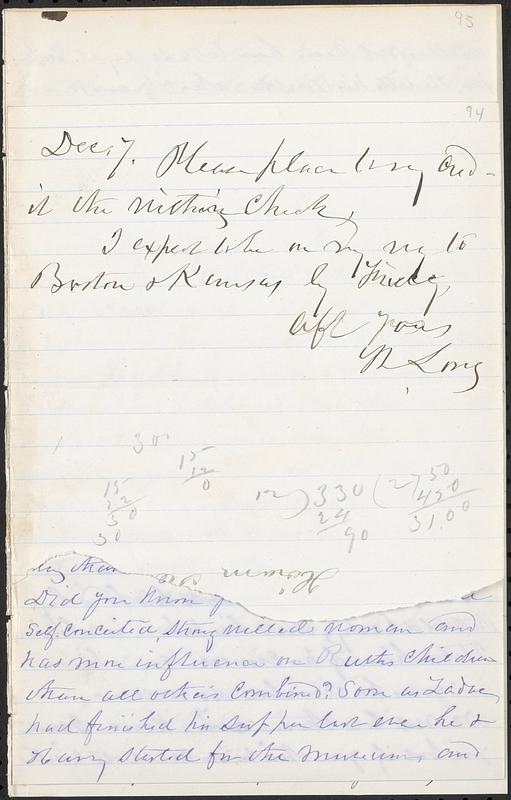 95
94
Dec, 7. Please place to my cred-
it the within check,
I expect to be on my way to
Boston & Kansas by Friday,
Aff yours
Long
30
15
12
0
15
12
30
30
12) 330 (27
24
90
50
420
31.00
Hiram
than
Did you know
Self conceited, strong willed woman and
has more influence on Ruths children
than all others combined? Soon as Ladue
had finished his supper last eve he &
Harry started for the Museum, and